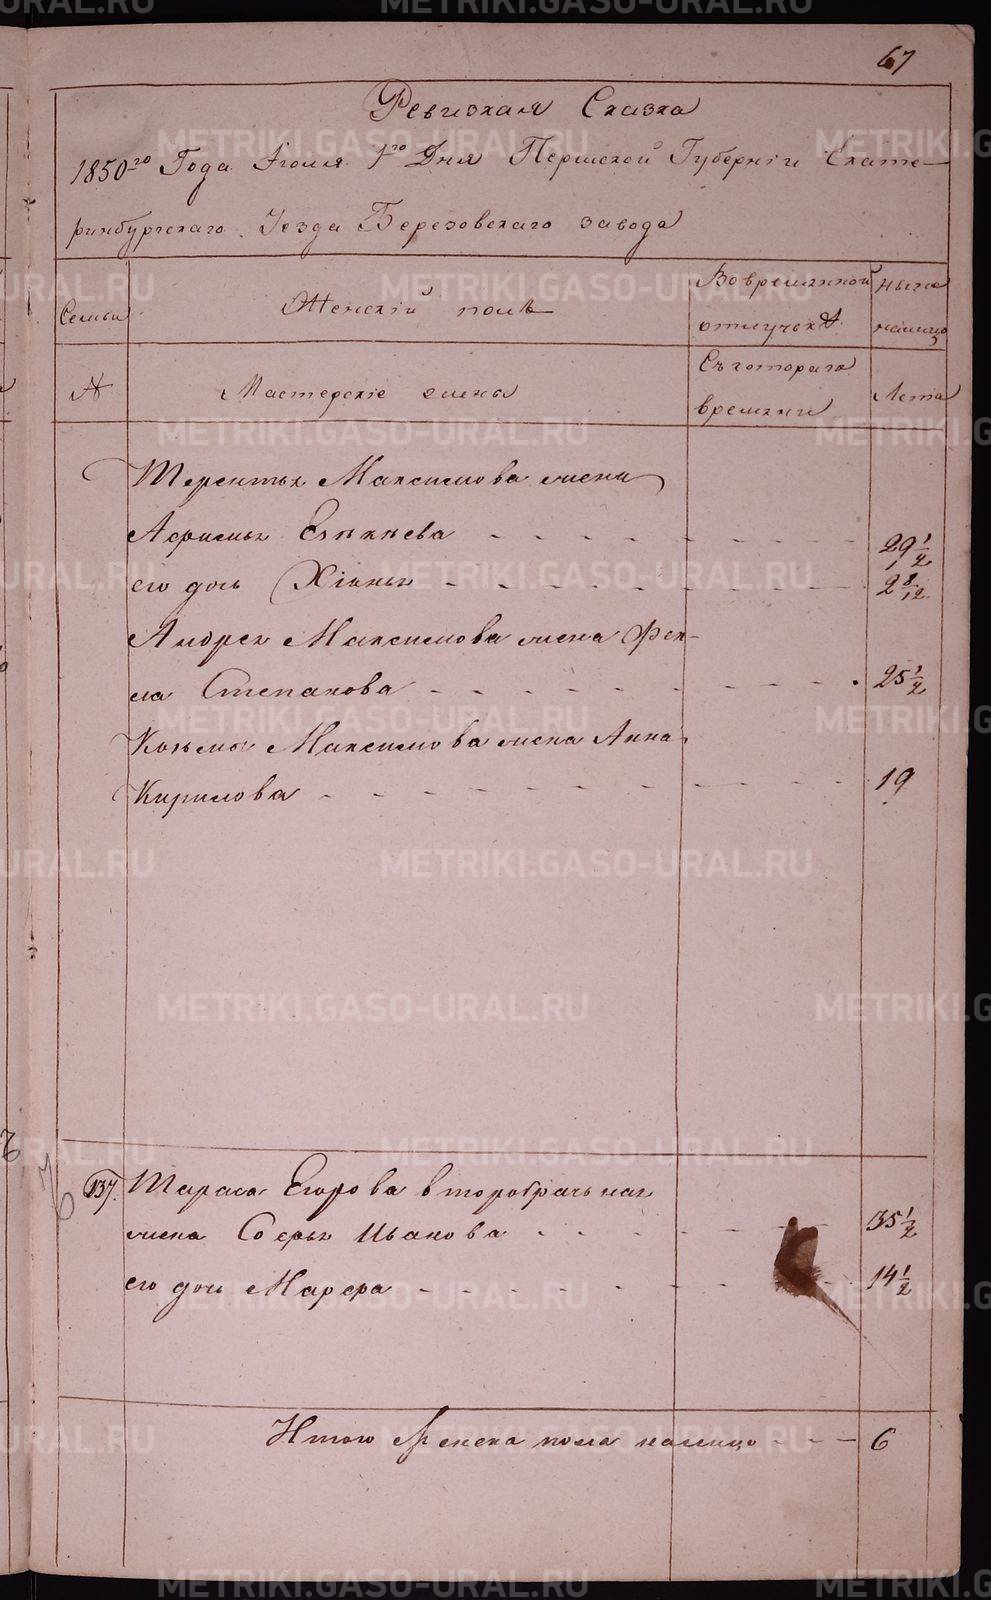 67
Ревизкая Сказка
1850го Года Июля 1го Дня Пермской Губернiи Екате-
ринбургскаго Уезда Березовскаго завода
Семьи
Женскiй полъ
Во временной
отлучке
ныне
налицо
№
Мастерскiе жены
Съ котораго
времяни
Лета
Терентья Максимова жена
Афимья Евниева
29 1/2
его дочь Хiонья
2 8/12
Андрея Максимова жена Фек-
ла Степанова
25 1/2
Козьмы Максимова жена Анна
Кирилова
19
137. Тараса Егорова второбрачьная
жена Софья Иванова
35 1/2
его дочь Марфа
14 1/2
Итого Женска пола налицо
6
METRIKI.GASO-URAL.RU